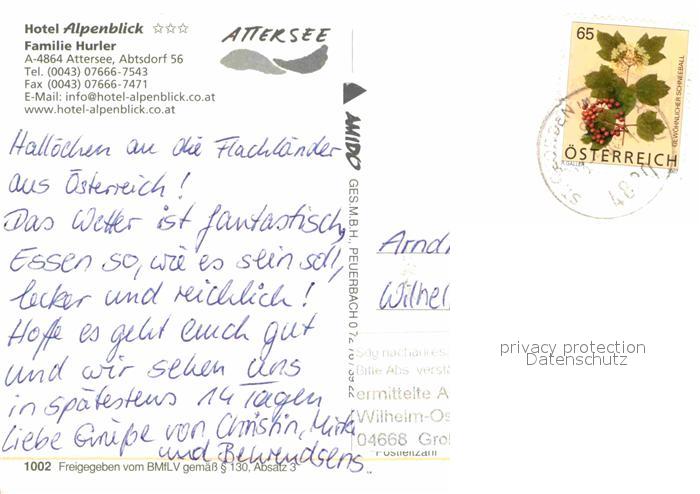 Hotel Alpenblick ☆☆☆
Familie Hurler
A-4864 Attersee, Abtsdorf 56
Tel. (0043) 07666-7543
Fax (0043) 07666-7471
E-Mail: info@hotel-alpenblick.co.at
www.hotel-alpenblick.co.at
ATTERSEE
Hallöchen an die Flachländer
aus Österreich!
Das Wetter ist fantastisch,
Essen so, wie es sein soll,
lecker und reichlich!
Hoffe es geht euch gut
und wir sehen uns
in spätestens 14 Tagen
Liebe Grüße von Christin, Mirko
und Behrendsens
1002 Freigegeben vom BMfLV gemäß § 130, Absatz 3
AMIDO GES.M.B.H., PEUERBACH
65
GEWÖHNLICHER SCHNEEBALL
ÖSTERREICH
Arnd
Wilhel
Bitte Abs
ermittelte A
Wilhelm-Os
04668 Gro
Postleitzahl
privacy protection
Datenschutz